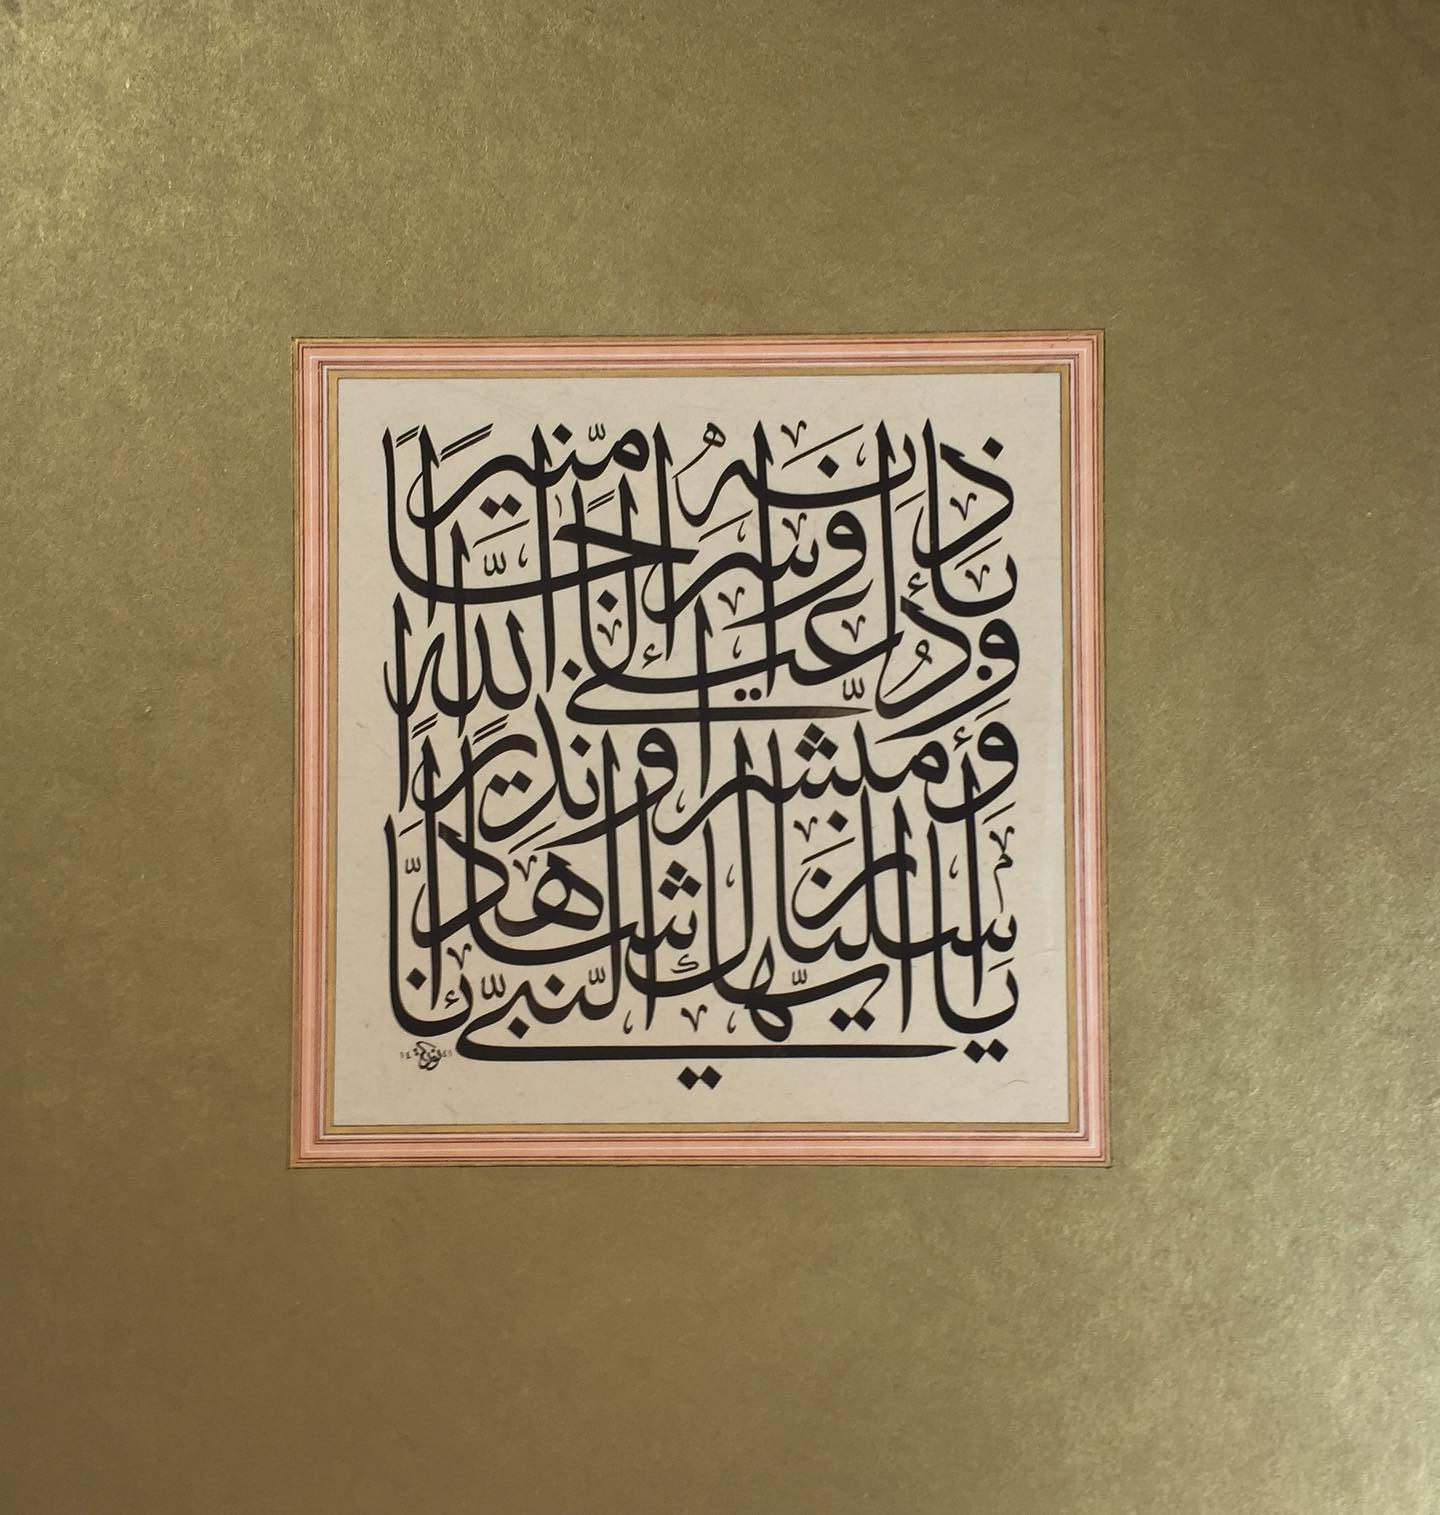 يا أيها النبي إنا
أرسلناك شاهدا
ومبشرا ونذيرا
وداعيا إلى الله
بإذنه وسراجا منيرا